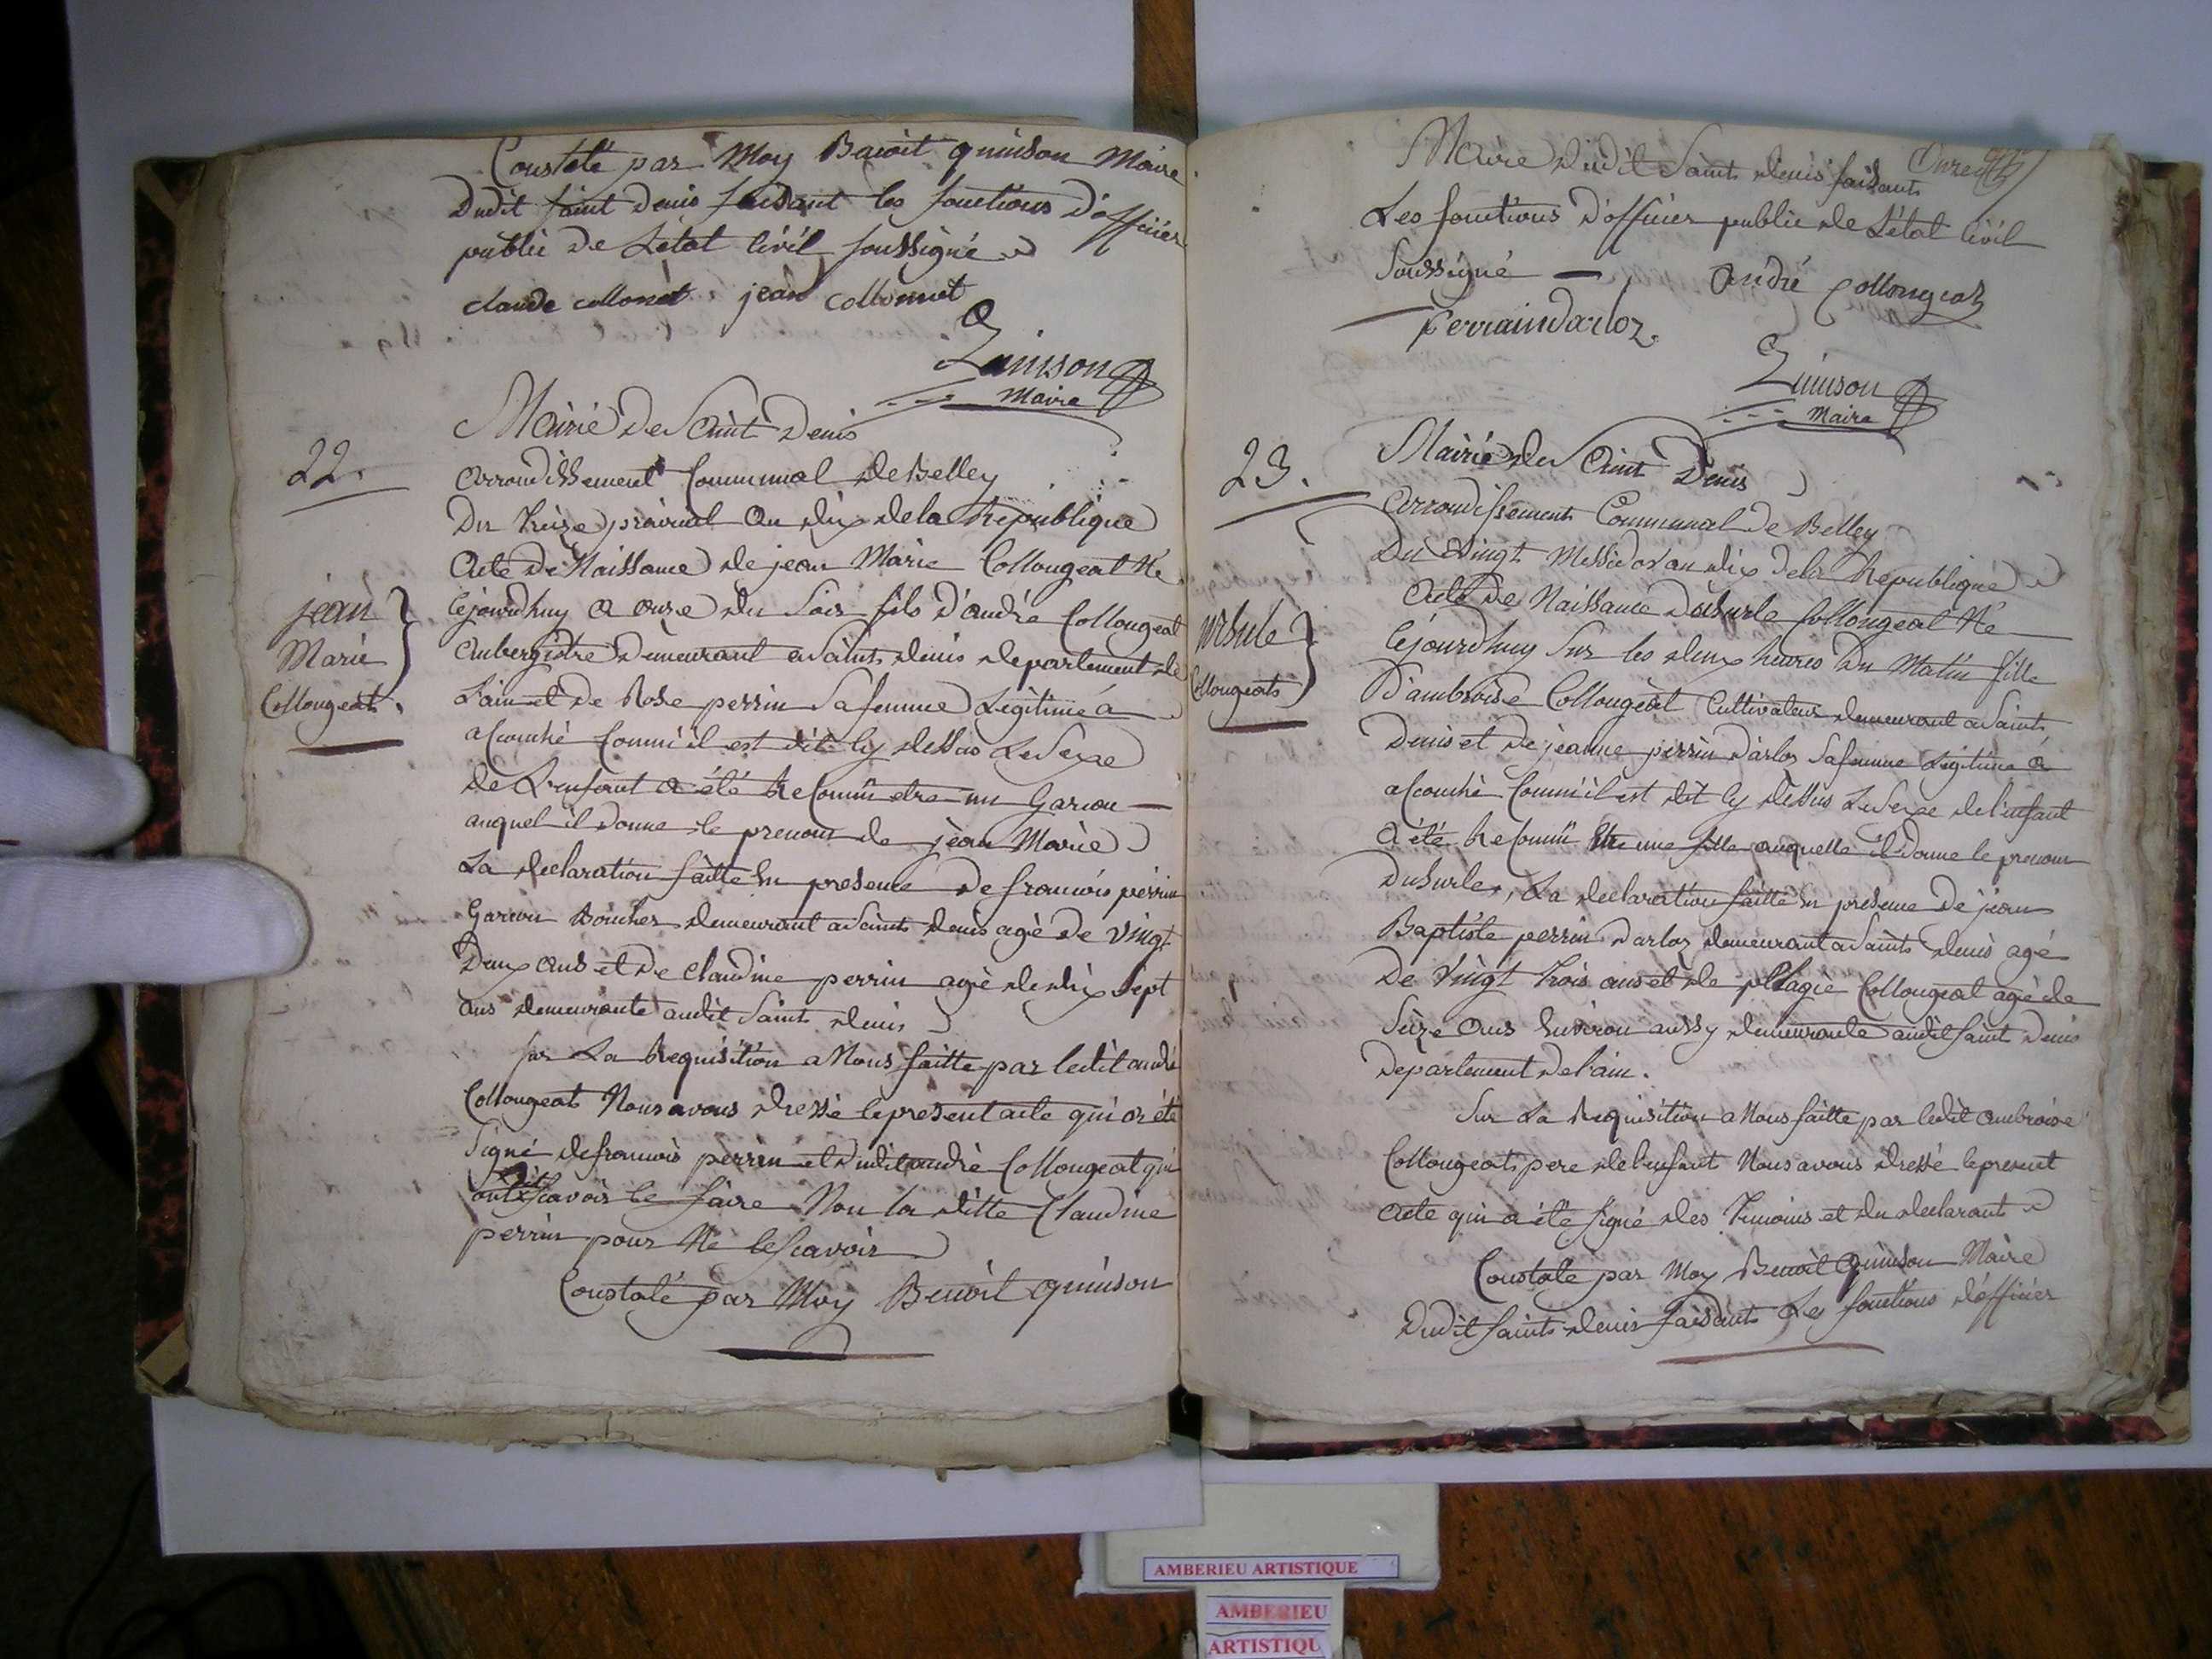 Constaté par Moy Benoit quinson Maire
Dudit saint Denis faisant les fonctions D'officier
public de L'état Civil soussigné
claude collonet jean collonnet
Quinson
Maire
22.
Mairie De Saint Denis
arrondissement Communal de Belley
Du treize prairial an dix de la Republique
Acte De Naissance de jean Marie Collongeat Né
jean
Marie
Collongeat.
Cejourdhuy a onze du Soir fils D'andré Collongeat
aubergistre Demeurant a Saint denis departement de
L'ain et de Rose perrin Sa femme Legitime á
acouché Comm'il est dit Cy dessus Le Sexe
de L'enfant a été Reconnu etre un Garçon
auquel il Donne le prenom de jean Marie
La declaration faitte En presence De francois perrin
Garcon Boucher demeurant a Saint denis agé De vingt
Deux ans et De claudine perrin agé de dix Sept
ans demeurante audit Saint denis
sur La Requisition a Nous faitte par ledit andré
Collongeat Nous avons dressé le present acte qui a été
Signé de francois perrin et dudit andré Collongeat qui
ont dit scavoir le faire Non la ditte Claudine
perrin pour Ne le scavoir
Constaté par Moy Benoit quinson
Onze
Maire dudit Saint denis faisant
Les fonctions D'officier public de L'état Civil
Soussigné andré Collongeat
perrain darloz.
Quinson
Maire
23.
Mairie de Saint Denis
arrondissement Communal De Belley
Du Vingt Messidor an dix de la Republique
ursule
Collongeat
Acte De Naissance D'usurle Collongeat Né
Cejourdhuy Sur les deux heures Du Matin fille
D'ambroise Collongeat Cultivateur demeurant a Saint
Denis et De jeanne perrin Darlos Sa femme Legitime á
acouché Comm'il est dit Cy dessus Le Sexe de l'enfant
a été Reconnu etre une fille auquelle il Donne le prenom
Dusurle, La declaration faitté En presence De jean
Baptiste perrin Darloz demeurant a Saint denis agé
De Vingt trois ans et de plagie Collongeat agé de
Seize ans Environ aussy demeurante audit saint Denis
departement de l'ain.
Sur La Requisition a Nous faitte par ledit ambroise
Collongeat pere de l'enfant Nous avons dressé le present
acte qui a été signé des temoins et du declarant
Constaté par Moy Benoit Quinson Maire
Dudit saint denis faisant Les fonctions d'officier
AMBERIEU ARTISTIQUE
AMBERIEU
ARTISTIQU